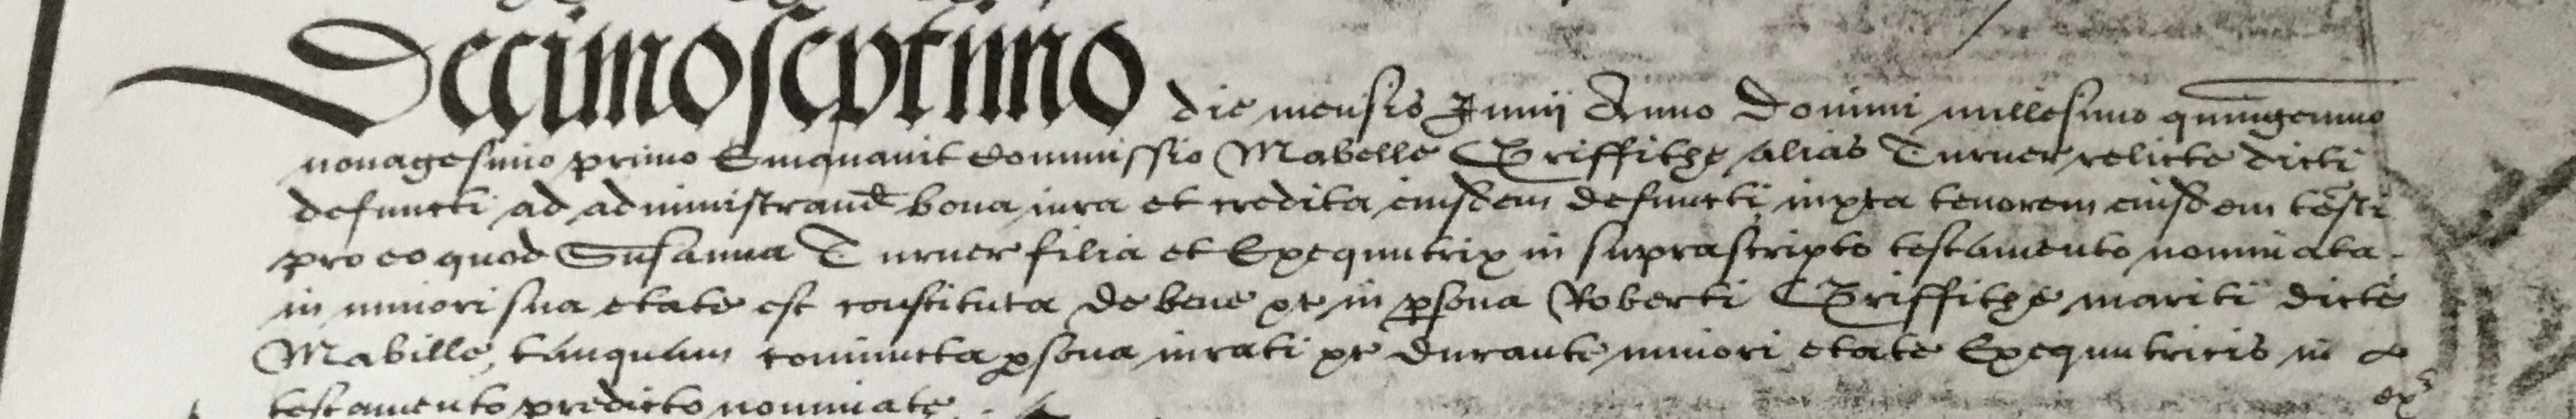 Decimoseptimo die mensis Junij Anno Domini millesimo quingenmo
nonagesimo primo Emanavit Commissio Mabelle Griffithe alias Turner relicte dicti
defuncti ad administrand bona iura et credita eiusdem defuncti iuxta tenorem eiusdem testi
pro eo quod Susanna Turner filia et Exequutrix in suprascripto testamento nominata
in minori sua etate est constituta de bene &c in psona Roberti Griffithe mariti dicte
Mabille, tanquam coniuncta psona iurati &c durante minori etate Exequutricis in
testamento predicto nominate